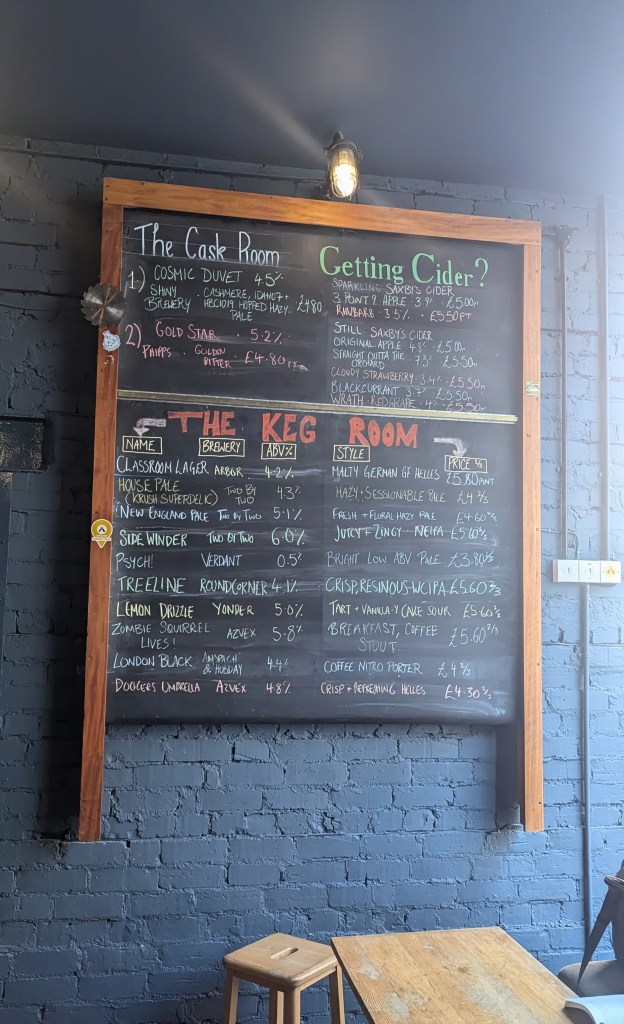 The Cask Room
1) COSMIC DUVET 4.5%
SHINY BREWERY · CASHMERE, IDAHO7 + HBC1019 HOPPED HAZY PALE · £4.80
2) GOLD STAR · 5.2%
PHIPPS · GOLDEN BITTER · £4.80 PT
Getting Cider?
SPARKLING SAXBY'S CIDER
3 POINT 9 APPLE 3.9% · £5.00PT
RHUBARB · 3.5% · £5.50 PT
STILL SAXBYS CIDER
ORIGINAL APPLE 4.8% · £5.00PT
STRAIGHT OUTTA THE ORCHARD · 7.5% · £5.50PT
CLOUDY STRAWBERRY · 3.4% · £5.50PT
BLACKCURRANT · 3.7% · £5.50PT
WRATH · RED GRAPE · 4% · £5.50PT
THE KEG ROOM
NAME BREWERY ABV% STYLE PRICE 2/3
CLASSROOM LAGER ARBOR 4.2% MALTY GERMAN GF HELLES £5.80 PINT
HOUSE PALE (KRUSH SUPERDELIC) TWO BY TWO 4.3% HAZY + SESSIONABLE PALE £4 2/3
NEW ENGLAND PALE TWO BY TWO 5.1% FRESH + FLORAL HAZY PALE £4.60 2/3
SIDEWINDER TWO BY TWO 6.0% JUICY + ZINGY NEIPA £5.60 2/3
PSYCH! VERDANT 0.5% BRIGHT LOW ABV PALE £3.80 2/3
TREELINE ROUNDCORNER 4.1% CRISP, RESINOUS WCIPA £5.60 2/3
LEMON DRIZZLE YONDER 5.0% TART + VANILLA-Y CAKE SOUR £5.60 2/3
ZOMBIE SQUIRREL LIVES! AZVEX 5.8% BREAKFAST, COFFEE STOUT £5.60 2/3
LONDON BLACK ANSPACH & HOBDAY 4.4% COFFEE NITRO PORTER £4 2/3
DOOGIES UMBRELLA AZVEX 4.8% CRISP + REFRESHING HELLES £4.30 2/3